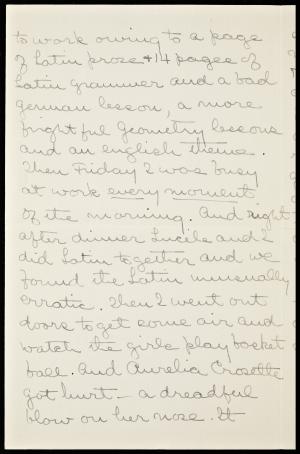 to work owing to a page
of Latin prose + 14 pages of
Latin grammer and a bad
german lesson, a more
frightful Geometry lessons
and an english theme.
Then Friday I was busy
at work every moment
of the morning. And right
after dinner Lucile and I
did Latin together and we
found the Latin unusually
erratic. Then I went out
doors to get some air and
watch the girls play basket
ball. And Aurelia Crosette
got hurt — a dreadful
blow on her nose. It